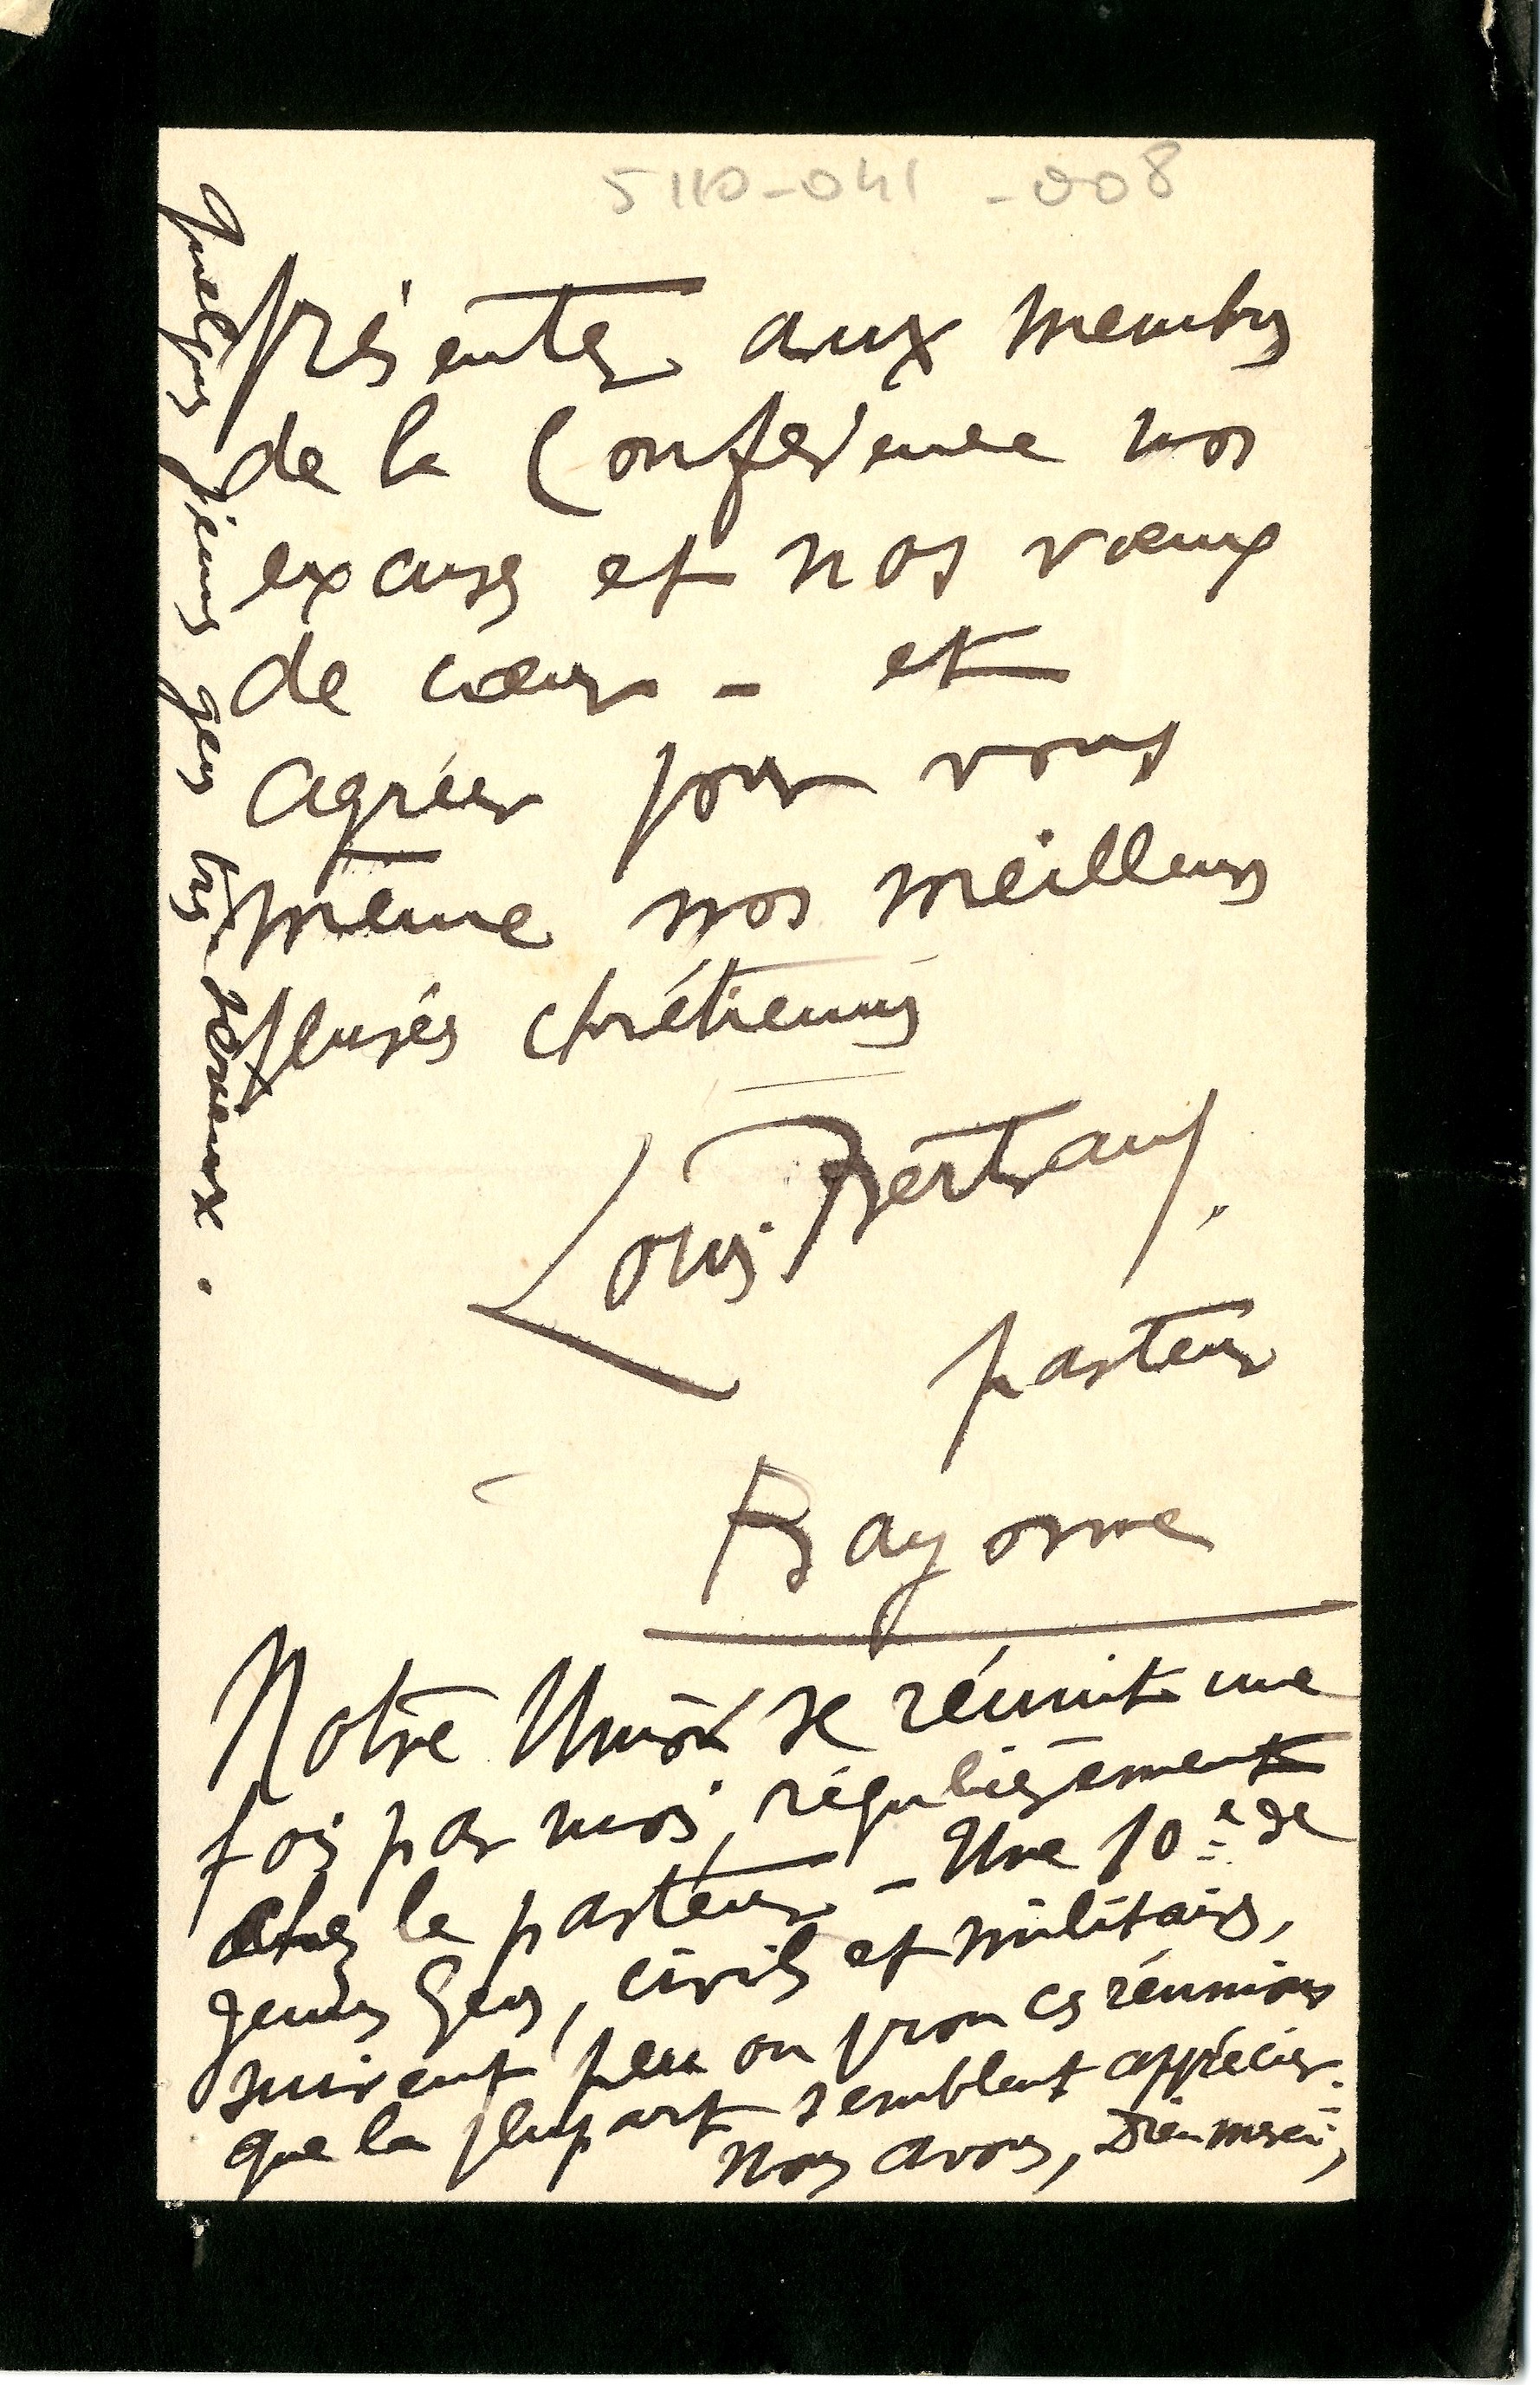 5110-041-008
présenter aux membres
de la Conférence nos
excuses et nos vœux
de cœur - et
agréer pour vous
même nos meilleures
pensées chrétiennes
Louis Bertrand.
pasteur
Bayonne
Notre Union se réunit une
fois par mois, régulièrement
chez le pasteur - Une 10e de
jeunes Gens, civils et militaires,
suivent peu ou prou ces réunions
que la plupart semblent apprécier.
Nous avons, Dieu merci,
quelques jeunes gens très sérieux.